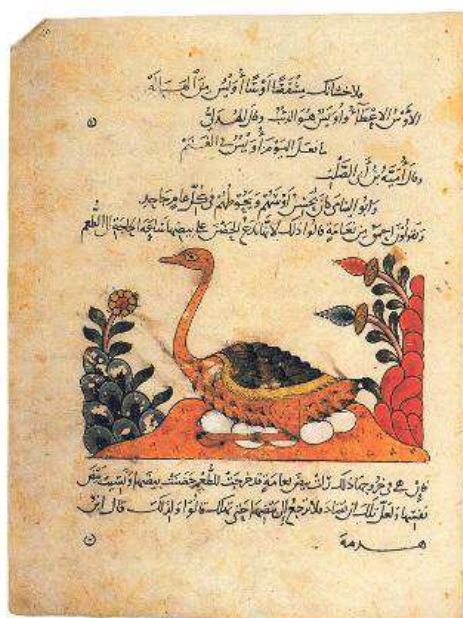 فلاحشانك مشقصا أوسا أويس من الهباله
الأوس الاعطاء وأويس هو الذئب وقال الهذلي
ما فعل اليوم أويس في الغنم
وقال أمية بن أبي الصلت
وابو اليتامى كان يحسن أوسهم ويحوطهم في كل عام جامد
ويقولون احمق من نعامة قالوا ذلك لانها تدع الحضن على بيضها ساعة الحاجة الى الطعم
فإن هي في خروجها ذلك رات بيض نعامة قد خرجت للطعم حضنت بيضها ونسيت بيض
نفسها ولعل تلك ان تصاد فلا ترجع إلى بيضها حتى تهلك قالوا ولذلك قال ابن
هرمة